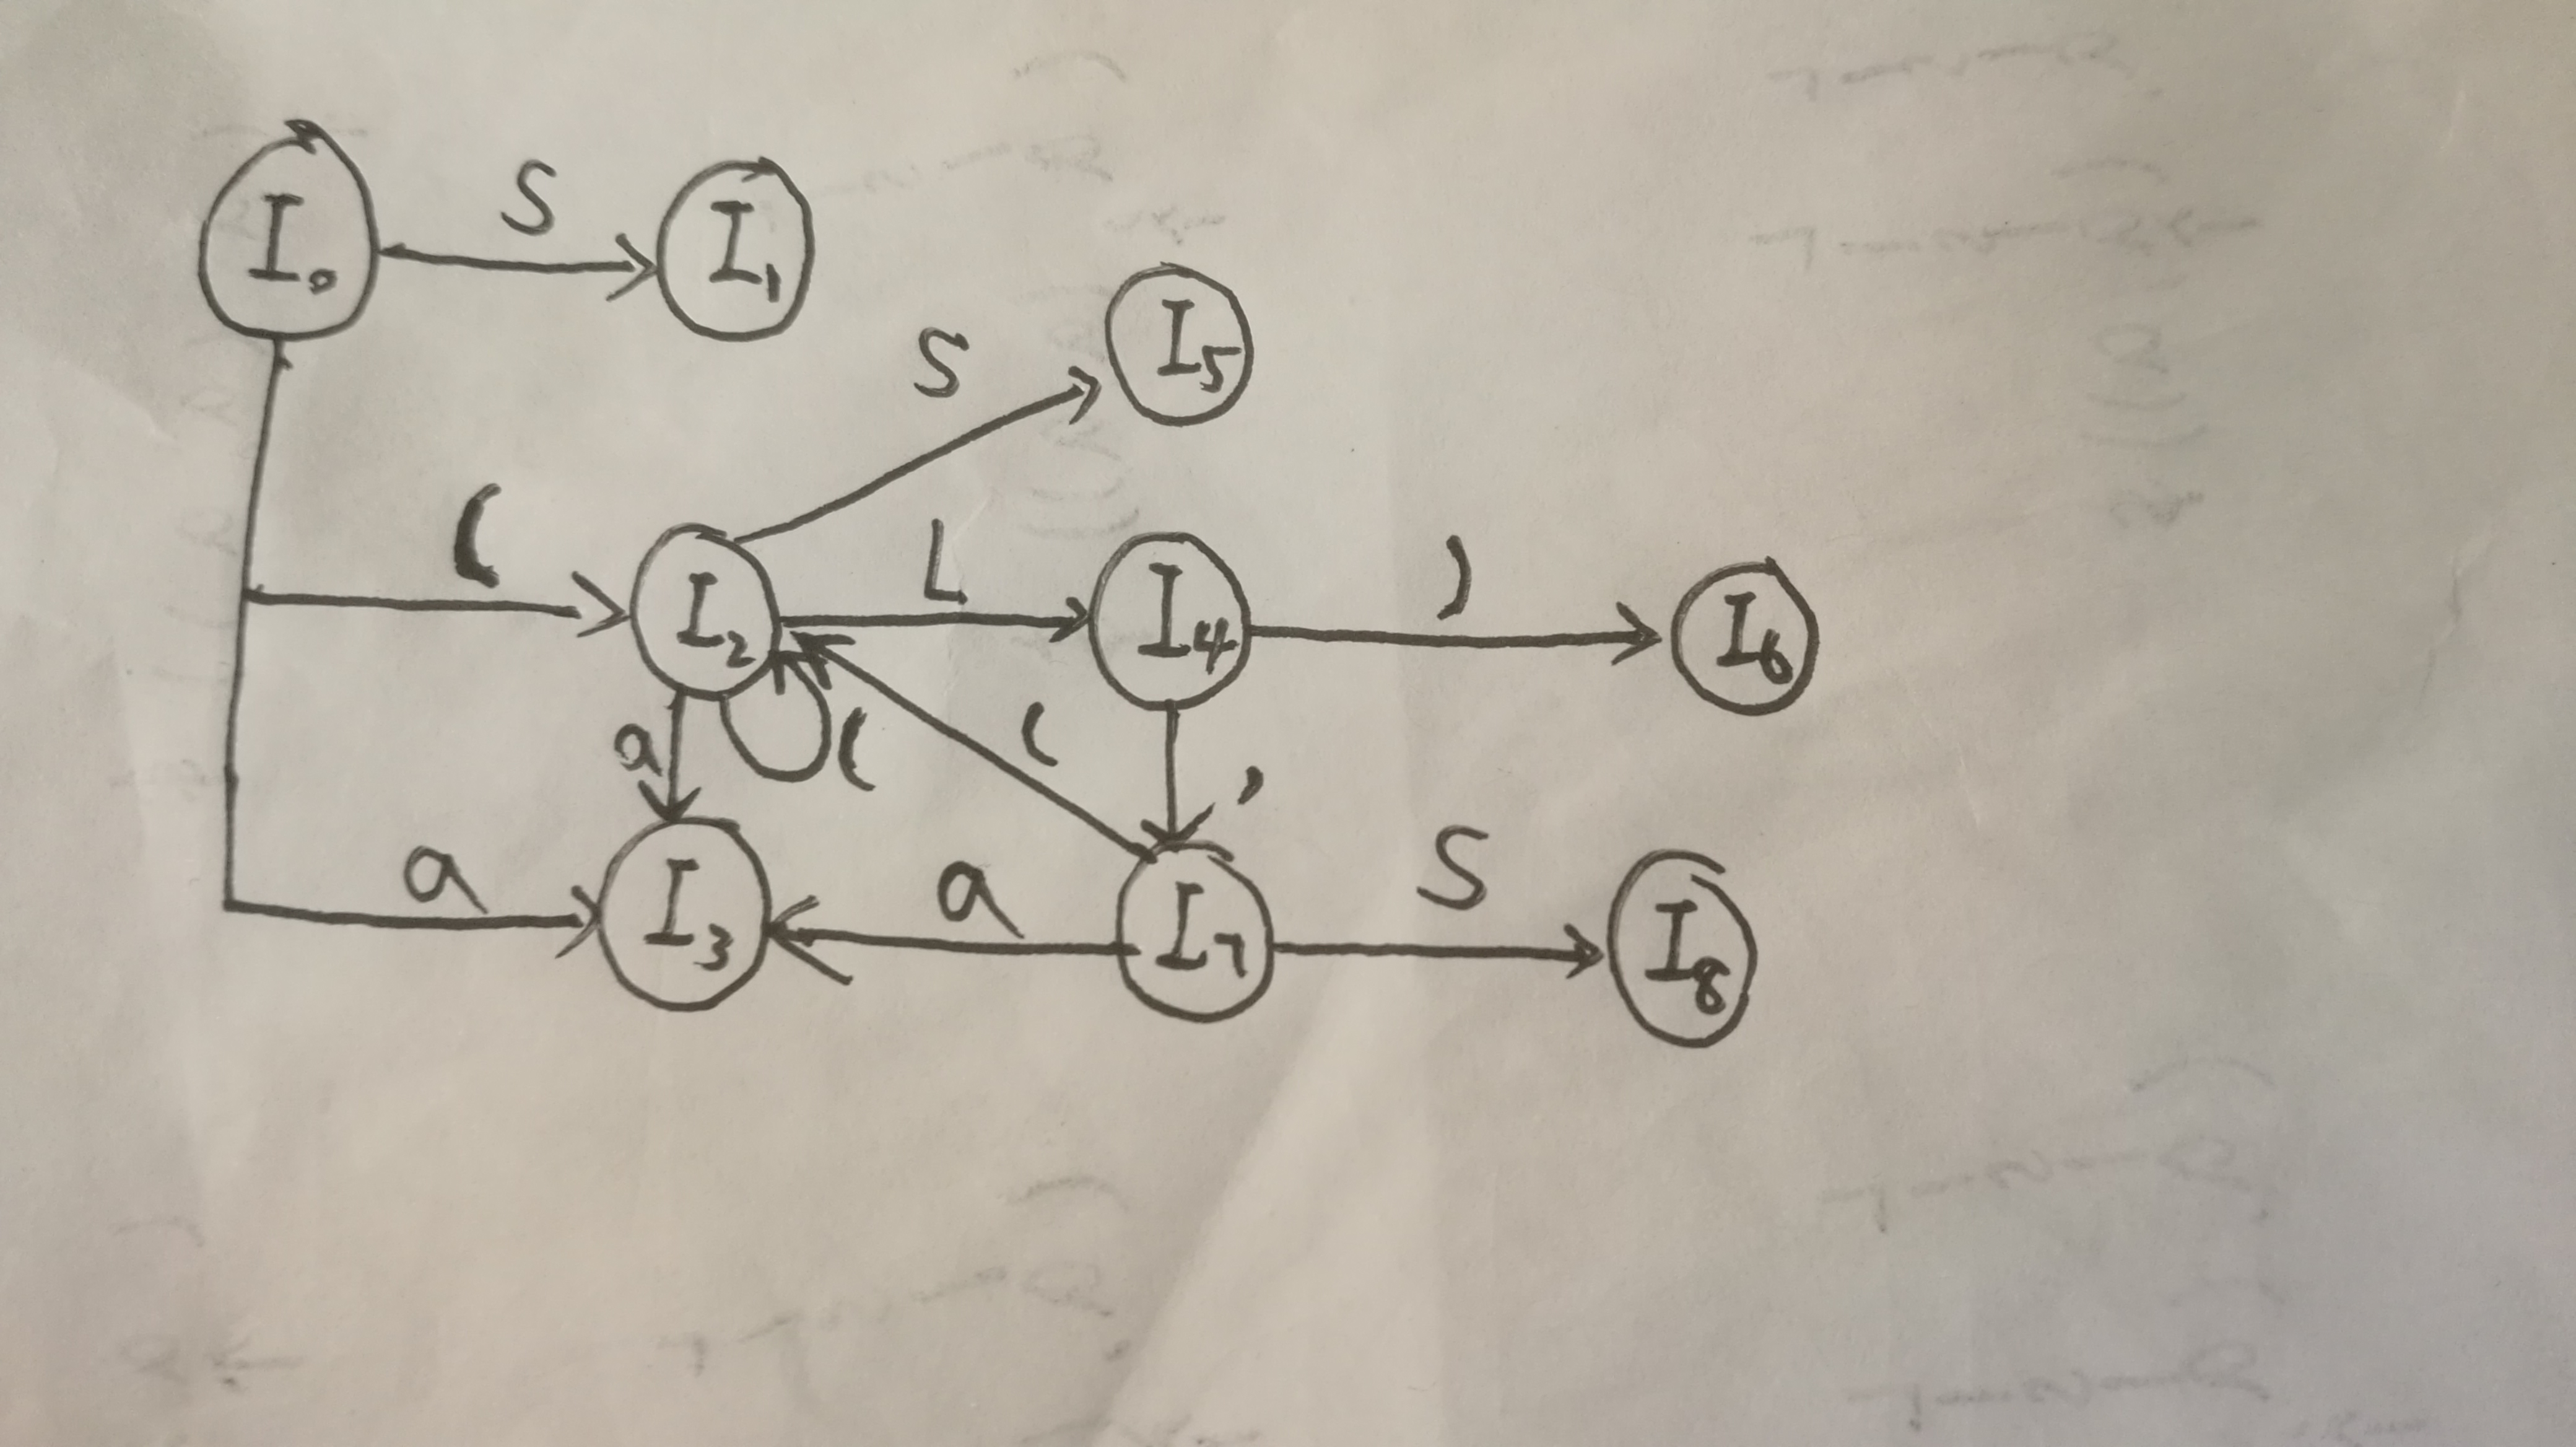 I₀ S I₁
S I₅
( I₂ L I₄ ) I₆
a ( ( ,
a I₃ a I₇ S I₈